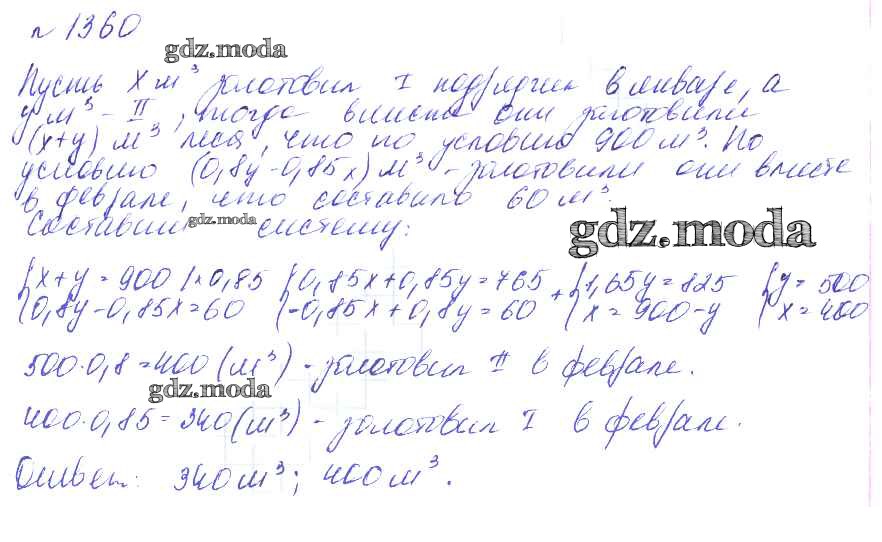 № 1360
gdz.moda
Пусть x м³ заготовил I подрядчик в январе, а
y м³ - II, тогда вместе они заготовили
(x+y) м³ леса, что по условию 900 м³. По
условию (0,8y-0,85x) м³ - заготовили они вместе
в феврале, что составило 60 м³.
Составим систему:
gdz.moda
gdz.moda
{x+y=900 |·0,85 {0,85x+0,85y=765 + {1,65y=825 {y=500
{0,8y-0,85x=60 {-0,85x+0,8y=60 {x=900-y {x=400
500·0,8=400 (м³) - заготовил II в феврале.
gdz.moda
400·0,85=340 (м³) - заготовил I в феврале.
Ответ: 340 м³; 400 м³.